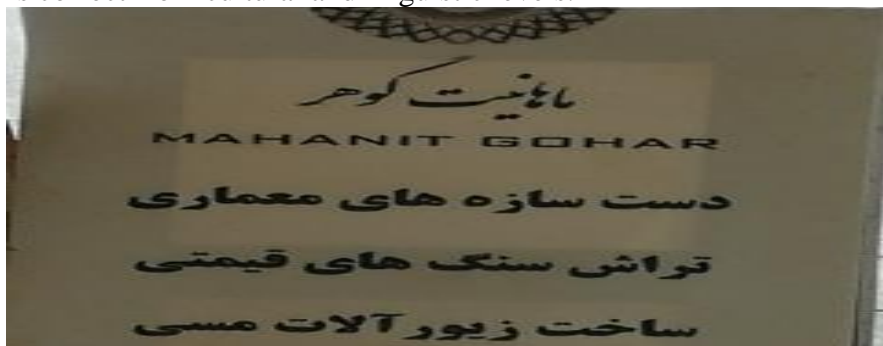 ماهانیت گوهر
MAHANIT GOHAR
دست سازه های معماری
تراش سنگ های قیمتی
ساخت زیورآلات مسی